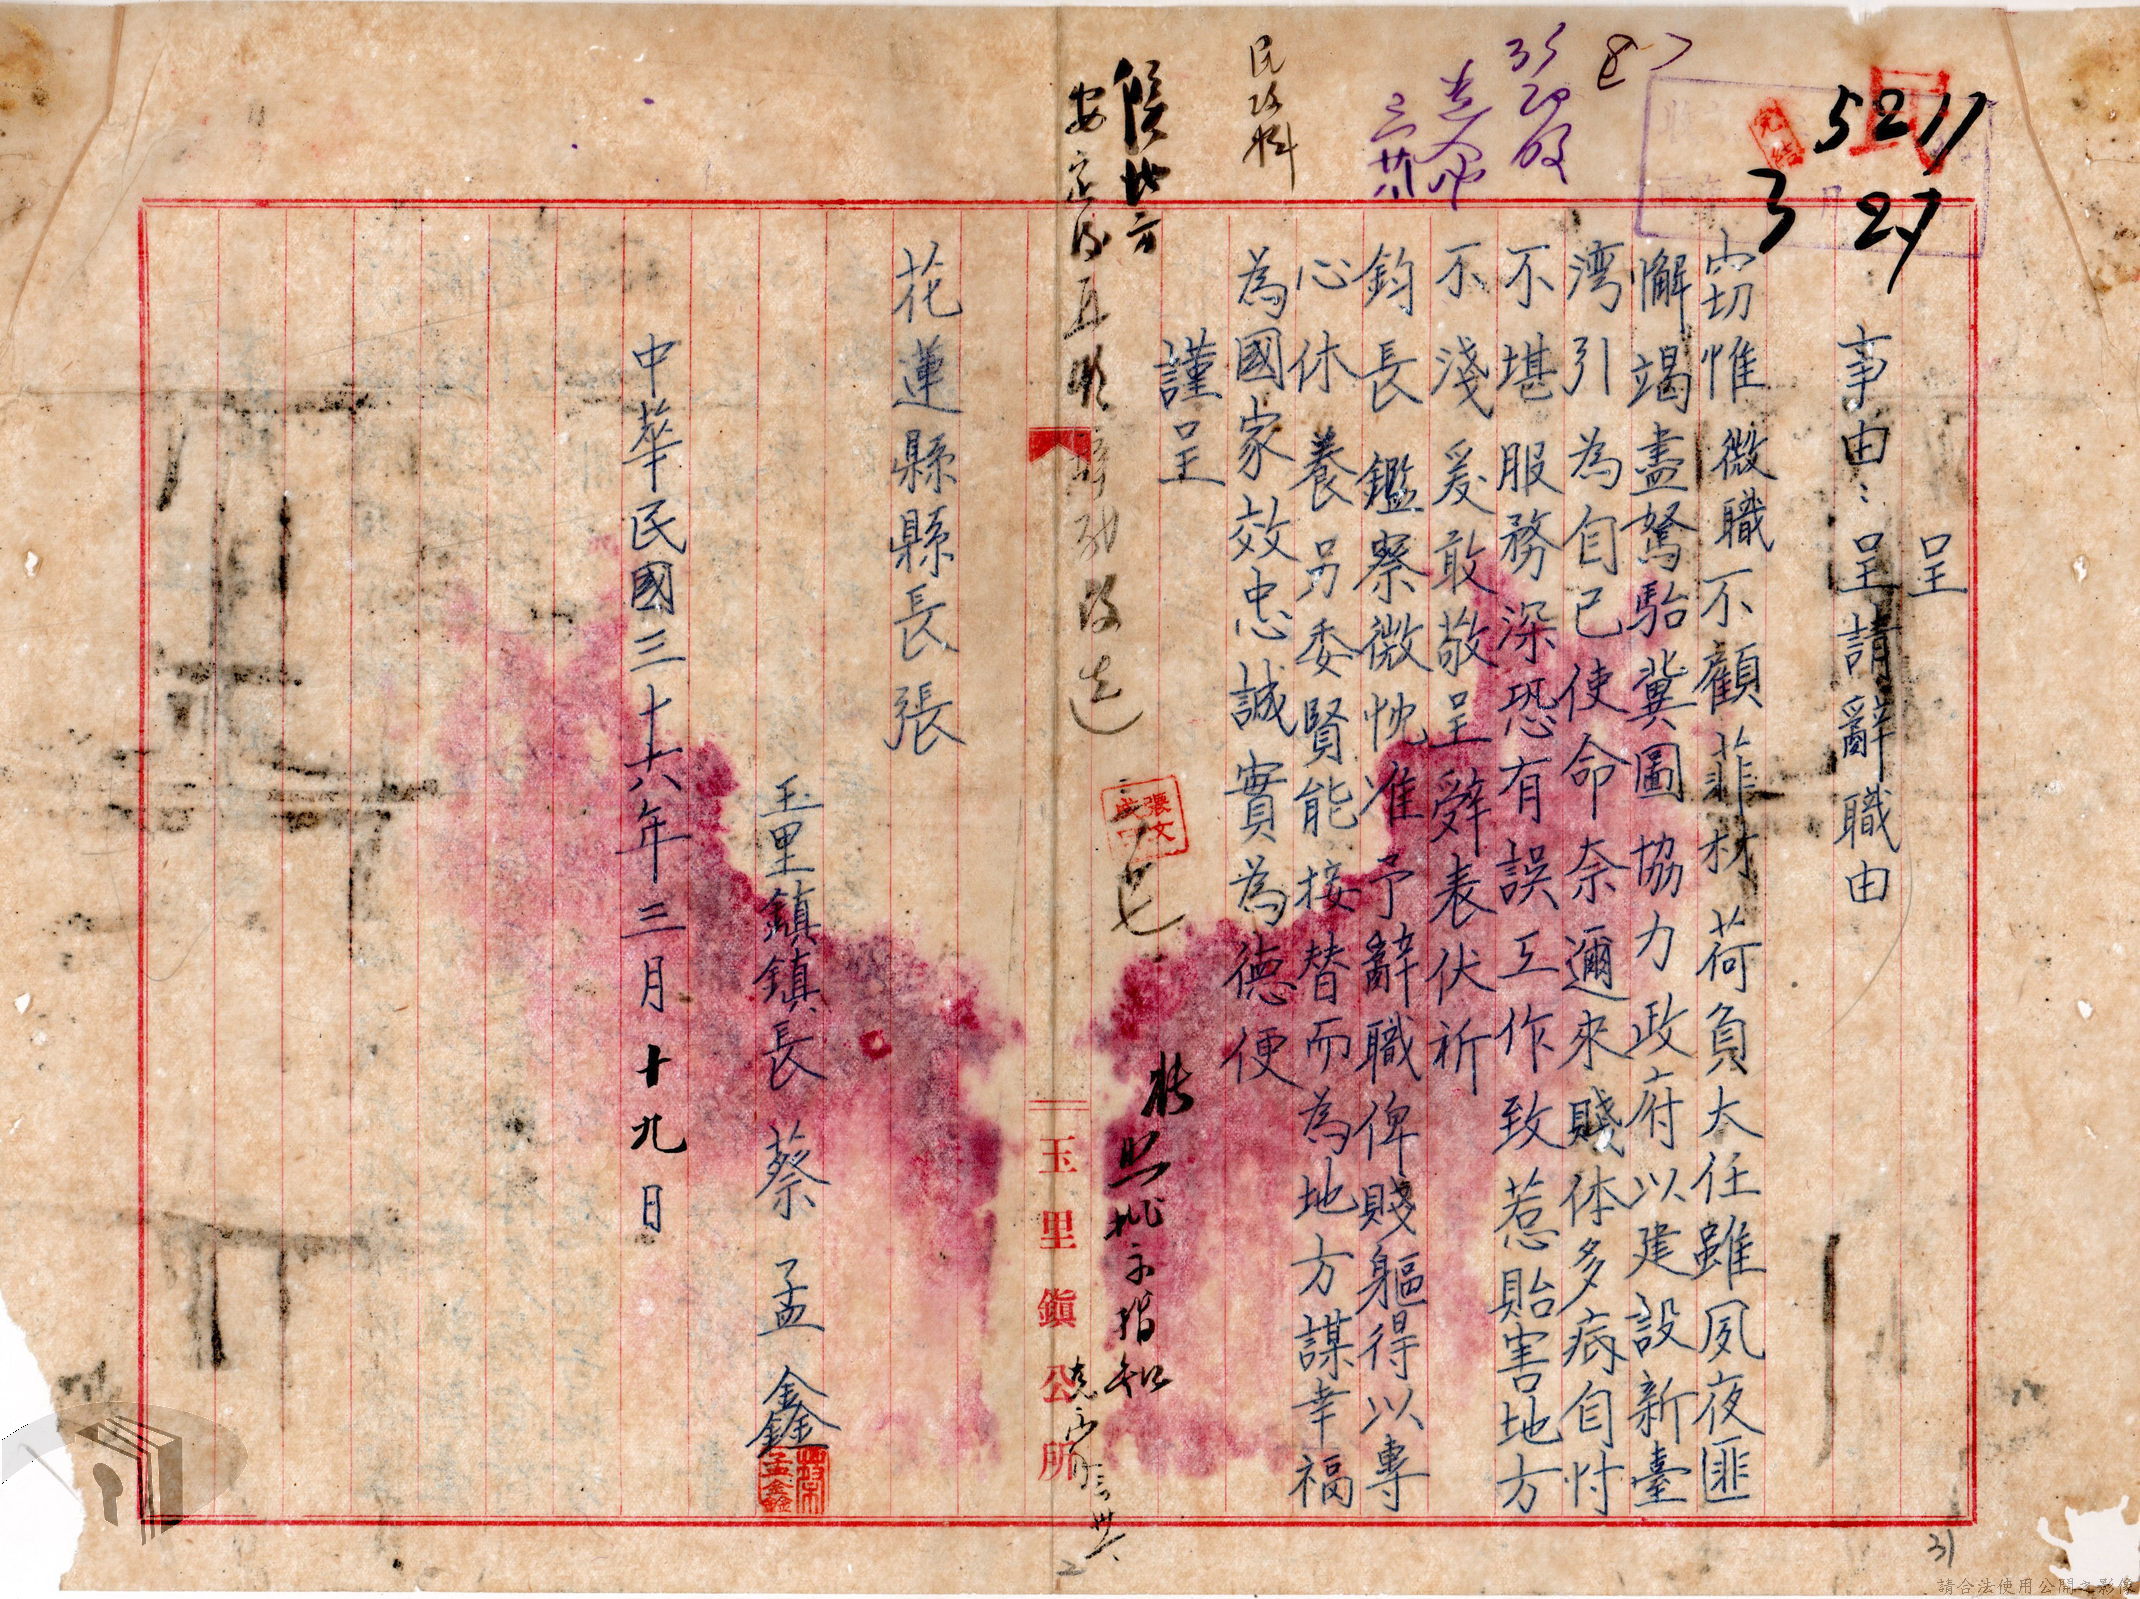 呈
事由：呈請辭職由
窃惟微職不顧菲材荷負大任雖夙夜匪
懈竭盡駑駘冀圖協力政府以建設新臺
湾引為自己使命奈邇來賤体多病自忖
不堪服務深恐有誤工作致惹貽害地方
不淺爰敢敬呈辞表伏祈
鈞長鑑察微忱准予辭職俾賤軀得以專
心休養另委賢能接替而為地方謀幸福
為國家效忠誠實為德便
謹呈
花蓮縣縣長張
玉里鎮鎮長蔡孟鑫
蔡孟鑫
中華民國三十六年三月十九日
玉里鎮公所
民政科
候地方
安定後再准辭職可也
張文成
批示指知
民
5217
3 27
月
31
2
請合法使用公開之影像